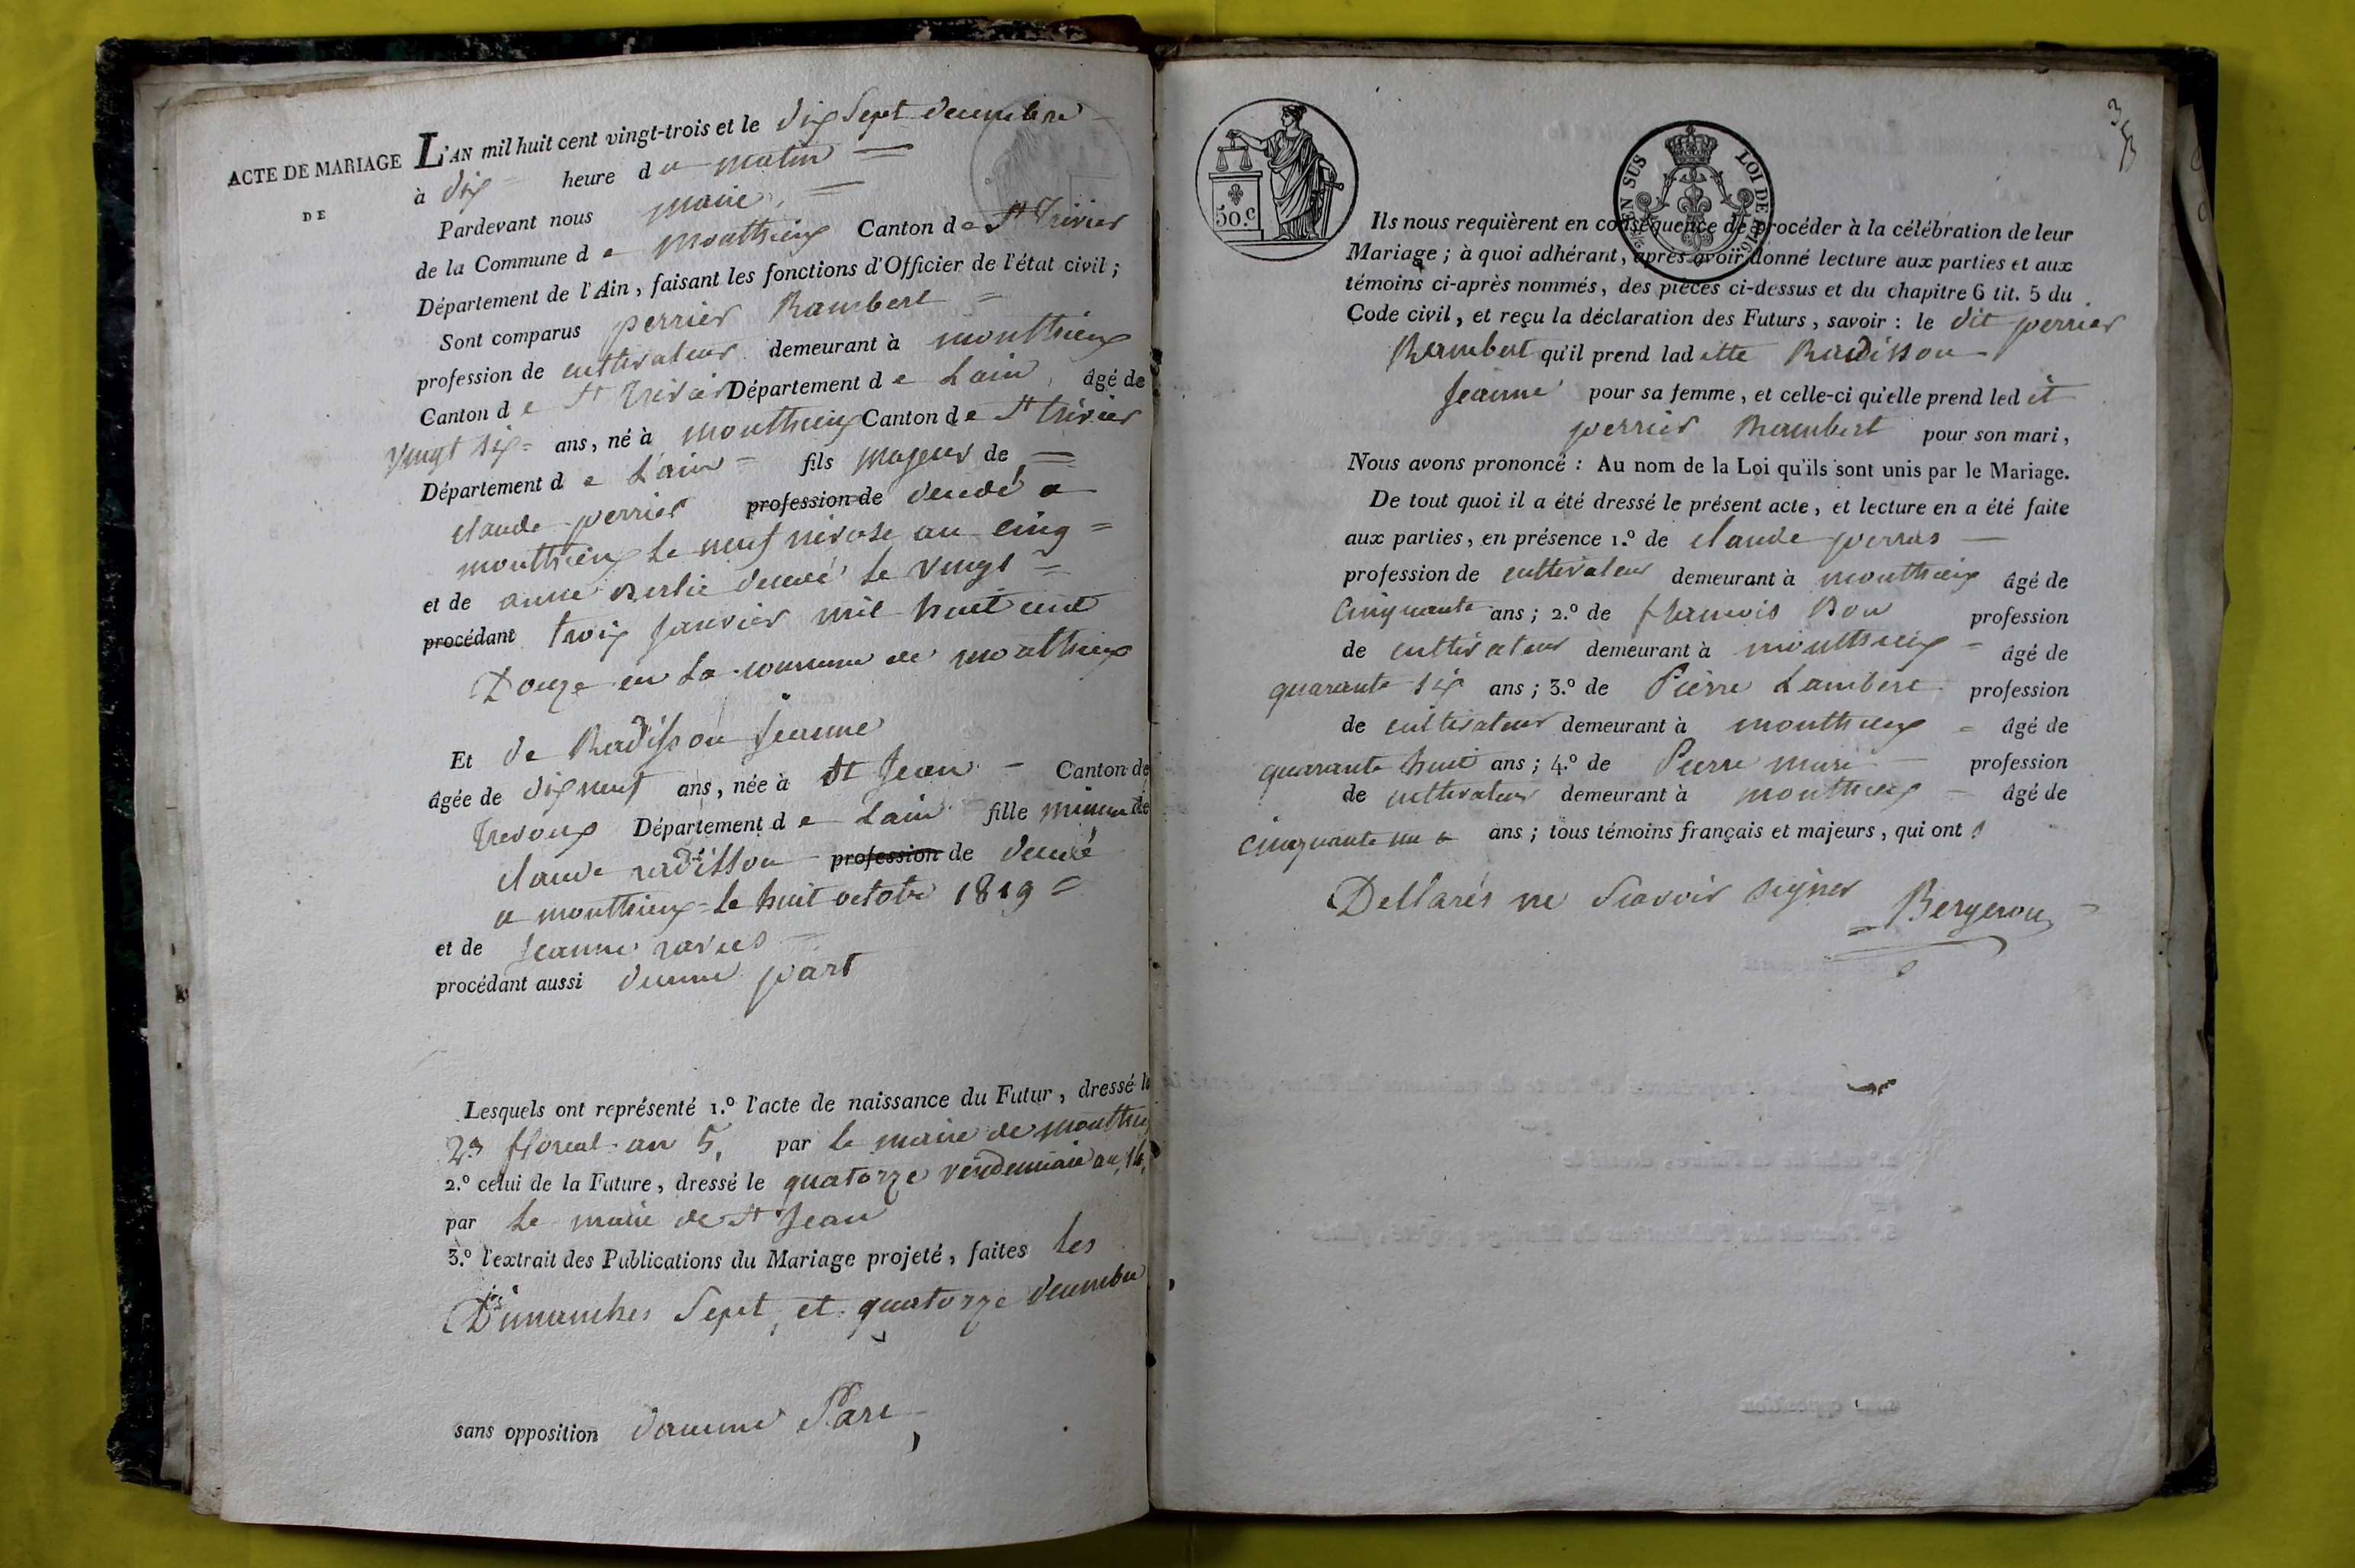 ACTE DE MARIAGE
DE
L'AN mil huit cent vingt-trois et le dix Sept decembre
à dix heure du matin
Pardevant nous maire
de la Commune de monthieux Canton de St Trivier
Département de l'Ain, faisant les fonctions d'Officier de l'état civil;
Sont comparus perrier Rambert
profession de cultivateur demeurant à monthieux
Canton de St Trivier Département de Lain, âgé de
vingt six ans, né à monthieux Canton de St trivier
Département de L'ain fils majeur de
claude perrier profession de decedé a
monthieux le neuf nivose an cinq
et de anne decedé le vingt
procédant trois janvier mil huit cent
Douze en la commune de monthieux
Et de Radisson jeanne
âgée de dix neuf ans, née à St Jean Canton de
Trevoux Département de Lain fille mineure de
claude radisson profession de decedé
a monthieux le huit octobre 1819
et de jeanne
procédant aussi daune part
Lesquels ont représenté 1.º l'acte de naissance du Futur, dressé le
23 floreal an 5, par le maire de monthieux
2.º celui de la Future, dressé le quatorze vendemiaire an 14,
par le maire de St Jean
3.º l'extrait des Publications du Mariage projeté, faites les
Dimanches Sept, et quatorze decembre
sans opposition daucune Part
35
50.c
EN SUS LOI DE 1816
Ils nous requièrent en conséquence de procéder à la célébration de leur
Mariage; à quoi adhérant, après avoir donné lecture aux parties et aux
témoins ci-après nommés, des pièces ci-dessus et du chapitre 6 tit. 5 du
Code civil, et reçu la déclaration des Futurs, savoir: le dit perrier
Rambert qu'il prend ladette Radisson
Jeanne pour sa femme, et celle-ci qu'elle prend ledit
perrier Rambert pour son mari,
Nous avons prononcé: Au nom de la Loi qu'ils sont unis par le Mariage.
De tout quoi il a été dressé le présent acte, et lecture en a été faite
aux parties, en présence 1.º de claude perras
profession de cultivateur demeurant à monthieux âgé de
Cinquante ans; 2.º de francois Bon profession
de cultivateur demeurant à monthieux âgé de
quarante six ans; 3.º de Pierre Lambert profession
de cultivateur demeurant à monthieux âgé de
quarante huit ans; 4.º de Pierre profession
de cultivateur demeurant à monthieux âgé de
cinquante un ans; tous témoins français et majeurs, qui ont
Dellarés ne Scavoir signer Bergeron